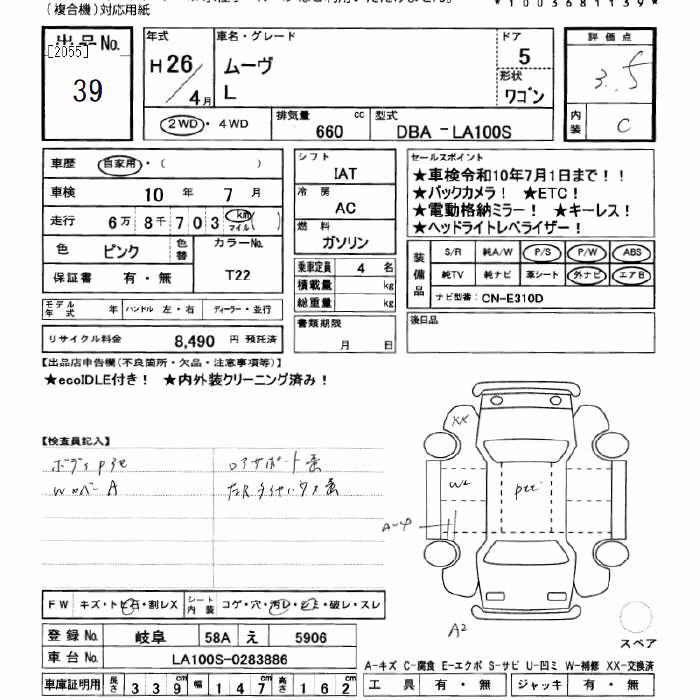 (複合機)対応用紙
*1003681139*
出品No. [2055]
39
年式 H26/4月
車名・グレード ムーヴ L
ドア 5
形状 ワゴン
2WD・4WD
排気量 660 cc
型式 DBA-LA100S
評価点 3.5
内装 C
車歴 自家用・( )
車検 10年 7月
走行 6万8千703 km マイル ( )
色 ピンク 色替
カラーNo. T22
保証書 有・無
モデル年式 年 ハンドル 左・右 ディーラー・並行
リサイクル料金 8,490 円 預託済
シフト IAT
冷房 AC
燃料 ガソリン
乗車定員 4 名
積載量 kg
総重量 kg
書類期限 月 日
セールスポイント
★車検令和10年7月1日まで！！
★バックカメラ！ ★ETC！
★電動格納ミラー！ ★キーレス！
★ヘッドライトレベライザー！
装備品 S/R 純A/W P/S P/W ABS
純TV 純ナビ 革シート 外ナビ エアB
ナビ型番: CN-E310D
後日品
【出品店申告欄(不良箇所・欠品・注意事項等)】
★ecoIDLE付き！ ★内外装クリーニング済み！
【検査員記入】
W
A
XX
W2
A2
FW キズ・トビ石・割レX
シート内装 コゲ・穴・汚レ・シミ・破レ・スレ
登録No. 岐阜 58A え 5906
車台No. LA100S-0283886
車庫証明用 長さ 339 幅 147 高さ 162
スペア
A-キズ C-腐食 E-エクボ S-サビ U-凹ミ W-補修 XX-交換済
工具 有・無 ジャッキ 有・無